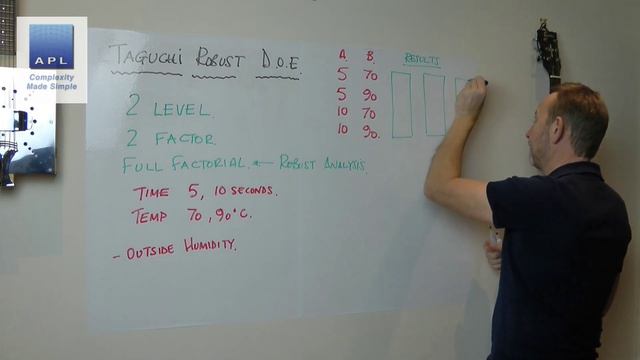 APL
Complexity
Made Simple
TAGUCHI ROBUST D.O.E.
2 LEVEL.
2 FACTOR.
FULL FACTORIAL. ← ROBUST ANALYSIS.
TIME 5, 10 SECONDS.
TEMP 70, 90°C.
- OUTSIDE HUMIDITY.
A. B. RESULTS
5 70
5 90
10 70
10 90.